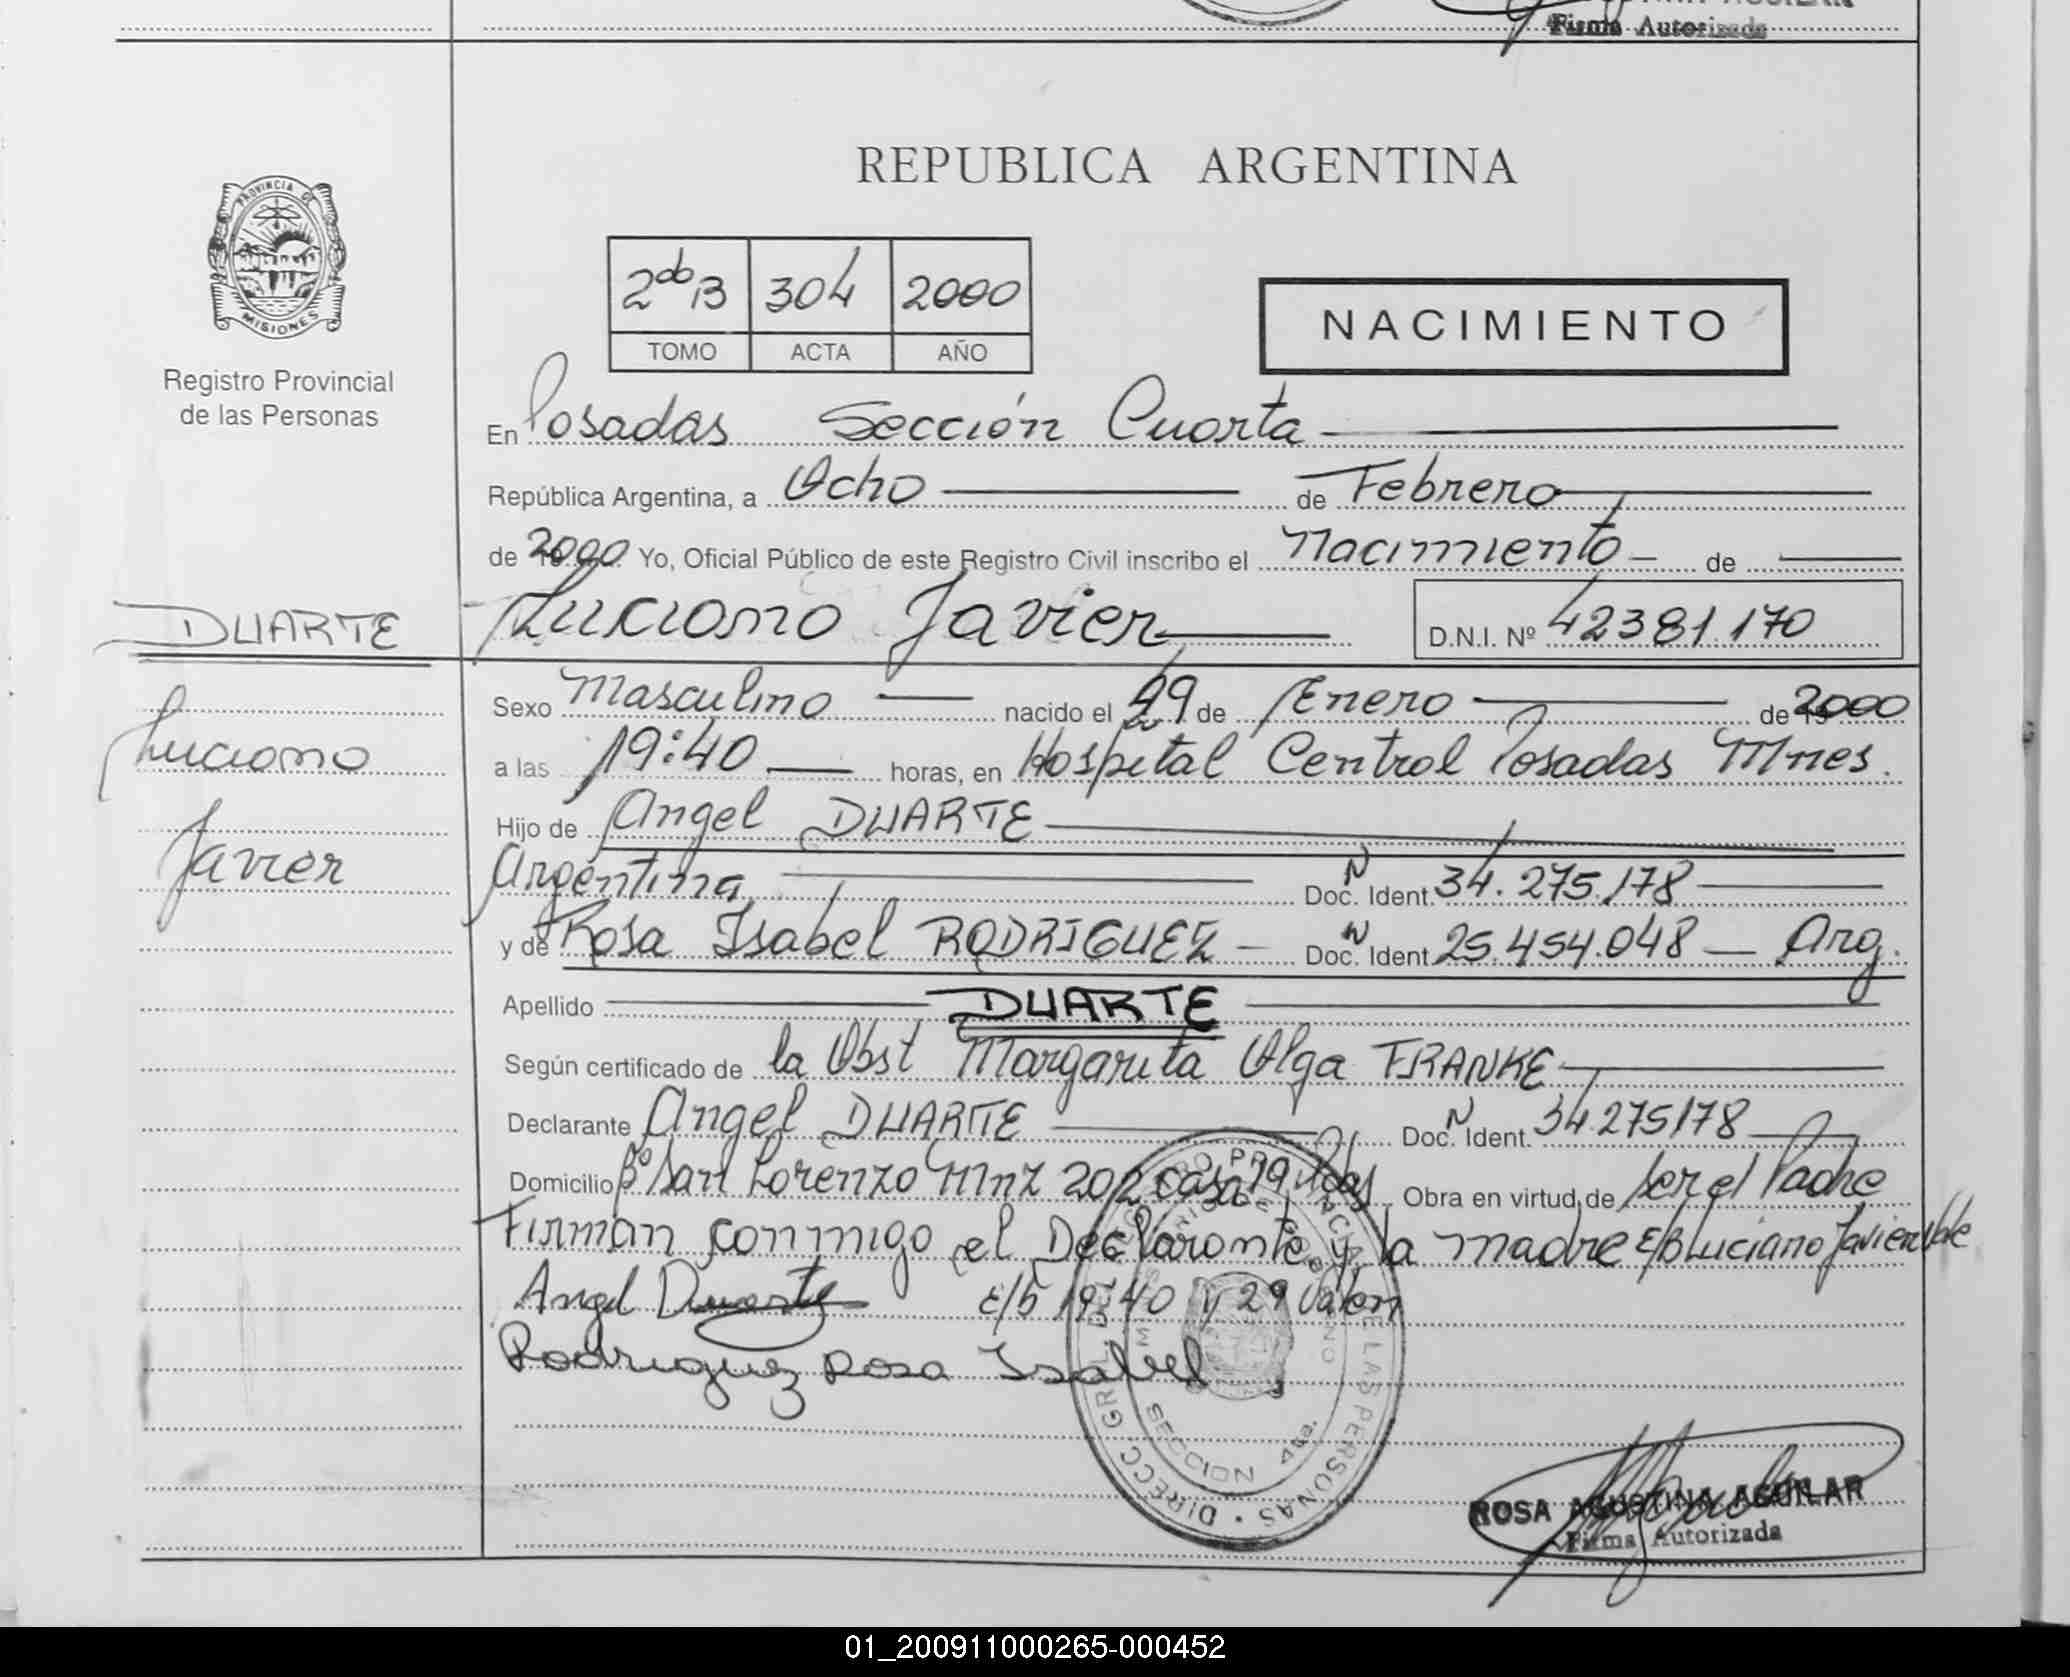 Firma Autorizada
REPUBLICA ARGENTINA
PROVINCIA DE
MISIONES
Registro Provincial
de las Personas
2do B 304 2000
TOMO ACTA AÑO
NACIMIENTO
En Posadas Sección Cuarta
República Argentina, a Ocho de Febrero
de 2000 Yo, Oficial Público de este Registro Civil inscribo el Nacimiento de
DUARTE
Luciano Javier D.N.I. Nº 42381.170
Sexo Masculino nacido el 29 de Enero de 2000
Luciano
a las 19:40 horas, en Hospital Central Posadas Mnes.
Hijo de Angel DUARTE
Javier
Argentina Doc. N Ident 34.275.178
y de Rosa Isabel RODRIGUEZ Doc. N Ident 25.454.048 Arg.
Apellido DUARTE
Según certificado de la Obst Margarita Olga FRANKE
Declarante Angel DUARTE Doc. N Ident. 34275178
Domicilio Bº San Lorenzo Mnz 202 Casa 19 Pdas Obra en virtud de ser el Padre
Firman conmigo el Declarante y la madre E/B Luciano Javier Vale
Angel Duarte E/b 19:40 y 29 Valen
Rodriguez Rosa Isabel
DIRECC. GRAL. DEL REGISTRO PROVINCIAL DE LAS PERSONAS
SECCION 4ta.
ROSA AGUSTINA AGUILAR
Firma Autorizada
01_200911000265-000452